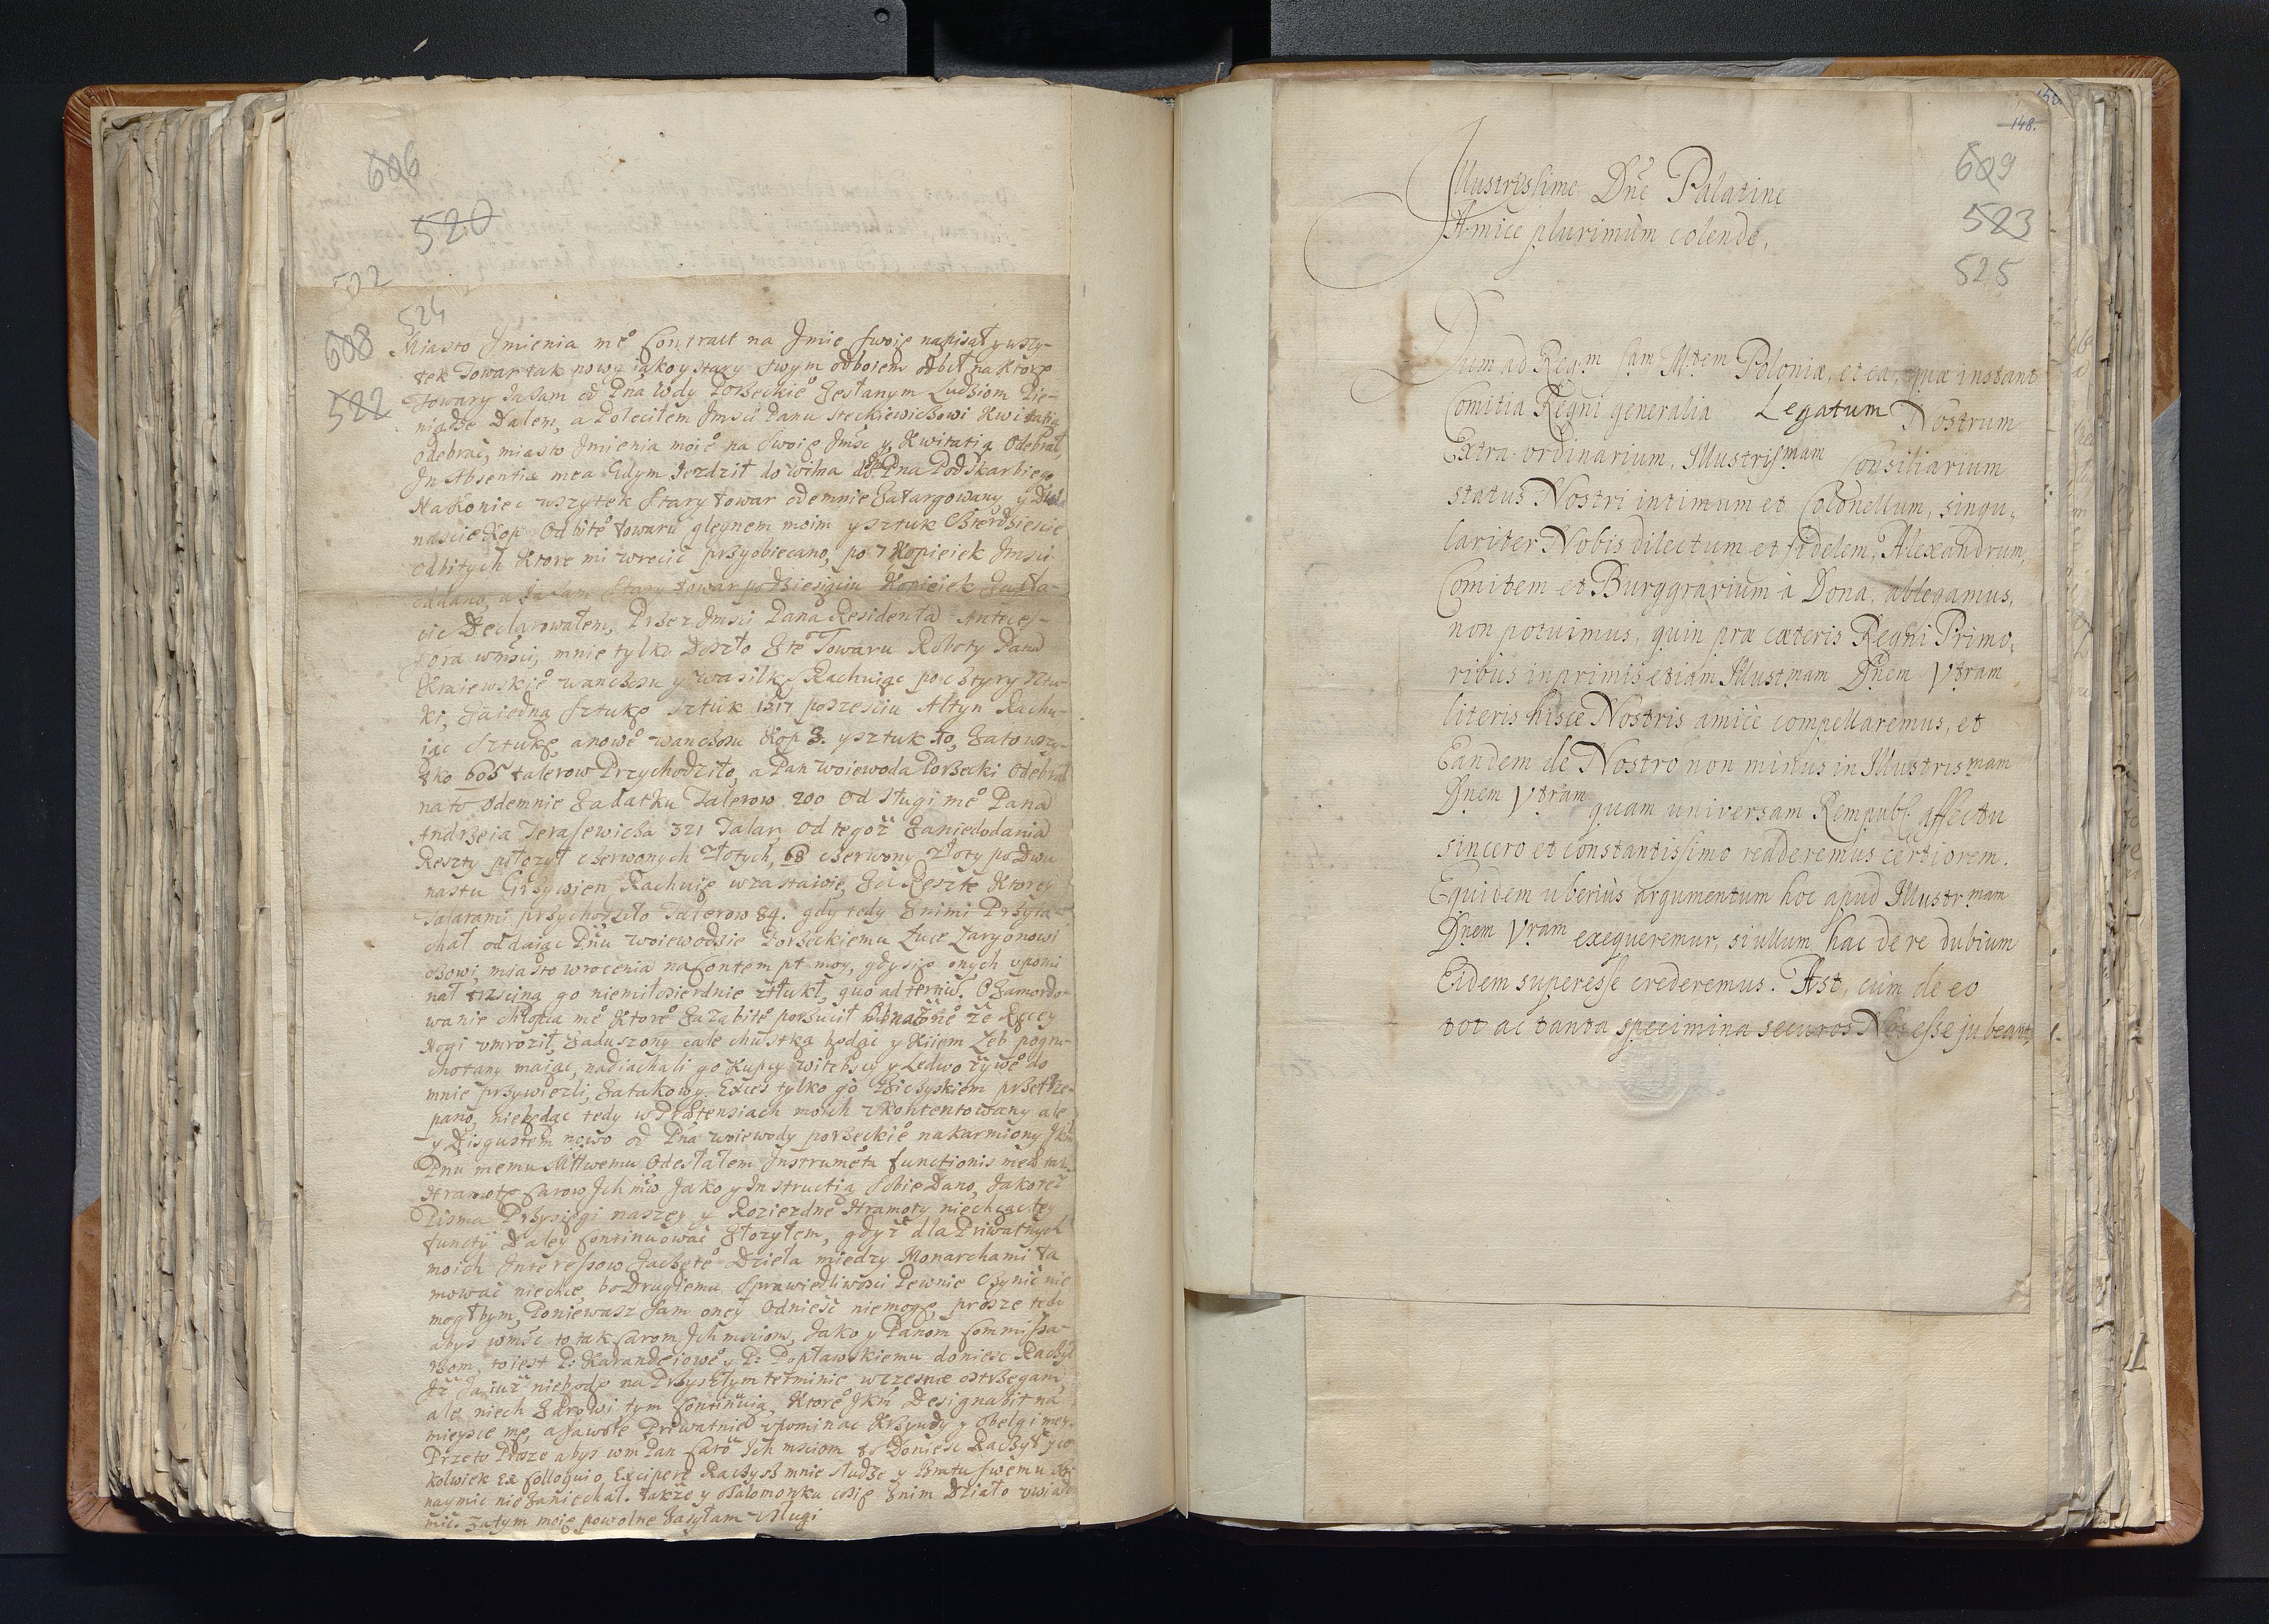 606
520
522
524
608
522
Miasto Imienia mẻ Contract na Imie swoię napisał y wszy-
tek Towar tak nowy iako y stary swym odboiem odbił na Ktore
Towary Ja sam od Pna Wdy Porzeckiẻ Zesłanym Ludziom Pie-
niądze Dałem, a Poleciłem Imści Panu Steckiewiczowi Kwitatią
odebrać, miasto Imienia moiẻ na Swoię Imśc y Kwitatią Odebrał,
In Absentia mea Gdym Iezdził do Wilna do Pna Podskarbiego
Na Koniec wszytek Stary towar odemnie Zatargowany y
nascie Kop Odbitẻ towaru gleynem moim y sztuk Czterdziescie
odbitych Ktore mi wrocić przyobiecano, po 7 Kopieiek Imsci
oddano, a Ja sam Stary towar po dziesięciu Kopieiek Zapła-
cić Declarowałem, Przez Imsci Pana Residenta Anteces-
sora wmści, mnie tylko Doszło Z tẻ Towaru Roboty Pana
Kraiewskiẻ wanczosu y wasilkę Rachuiąc po cztyry sztu-
ki, Za iedną Sztukę sztuk 1217 po szesciu Altyn Rachu-
iąc Sztukę, a nowẻ wanczosu Kop 3. y sztuk 10, Za to wszy-
tko 605 talerow Przychodziło, a Pan Woiewoda Porzecki Odebrał
na to Odemnie Zadatku Talerow 200 Od Sługi mẻ Pana
Andrzeia Terasewicza 321 Talar, Od tegoż Za niedodania
Reszty płozył czerwonych złotych, 68 czerwony złoty po Dwu
nastu Grzywien Rachuię w zastawie, Za Reszte Ktorey
Talarami przychodziło Talerow 84. gdy tedy Z nimi Przyia-
chał oddaiąc Pnu woiewodzie Porzeckiemu Łuce Laryonowi
czowi, miasto wrocenia na Contempt moy, gdy się onych upomi
nał trzciną go niemiłosierdnie stłukł, quo ad terniu. O Zamordo-
wanie chłopca mẻ Ktorẻ Za zabitẻ porzucił że Ręcey
Nogi vmroził, Zaduszony cale chustka będąc y Kiiem Łeb pogru-
chotany maiąc, nadiachali go Kupcy witebscy y Ledwo żywẻ do
mnie przywiezli, Za takowy Exces tylko go Biczyskiem przetrze-
pano, niebędąc tedy w Prætensiach moich vkontentowany ale
y Disgustem nowo od Pna woiewody porzeckiẻ nakarmiony
Pnu memu Miłłwemu Odesłałem Instrumẻta functionis meæ tak
Hramotę Carow Ich mśc Jako y Instructią Sobie Dano, Jako też
Pisma Przysięgi naszey y Rozierdne Hramoty niechcąc tey
functÿ Daley Continuować Złozyłem, gdyż dla Priwatnych
moich Interessow Zaczętẻ Dzieła miedzy Monarchami ta
mować niechcę, bo Drugiemu Sprawiedliwosci Pewnie Czynić nie
mogłbym, Poniewasz Sam oney Odnieść niemogę, prosze tedy
abys wmśc to tak Carom Ich msciom, Jako y Panom Commissa-
rzom, to iest P: Karandeiowẻ y P: Popławskiemu doniesc Raczył
Iż Ja iuż niebędę na Przyszłym terminie wczesnie ostrzegam
ale niech Zdrowi tym Continuią, Ktorẻ JKm Designabit na
mieysce me, a Ja wolę Priwatnie vpominac Krzywdy y Obelgi mey
Przeto Prosze abys wm Pan Carỏ Ich msciom to Doniesc Raczył y co
kolwiek Ex Colloquio Excipere Raczysz mnie słudze y Bratu swemu
naymic nie Zaniechał. także y o Salomonka co się Z nim Działo vwiado
mić. Zatym moie powolne Zasyłam Usługi
150
148.
609
523
525
Illustrissime Dn̄e Palatine
Amice plurimùm colende,
Dum ad Reg.m Sam M.tem Poloniæ, et ea, quæ instant
Comitia Regni generalia Legatum Nostrum
Extra-ordinarium, Illustrissmam Consiliarium
status Nostri intimum et Colonellum, singu„
lariter Nobis dilectum et fidelem, Alexandrum,
Comitem et Burggravium à Dona, ablegamus,
non potuimus, quin præ cæteris Regni Primo„
ribus inprimis etiam Illustmam Dnem Vtram
literis hisce Nostris amicè compellaremus, et
Eandem de Nostro non minus in Illustrismam
Dnem Vtram quam universam Rempubl. affectu
sincero et constantissimo redderemus certiorem.
Equidem uberiùs argumentum hoc apud Illustrmam
Dnem Vram exequeremur, si ullum hac de re dubium
Eidem superesse crederemus. Ast, cùm de eo
tot ac tanta specimina securos Nos esse jubeant,